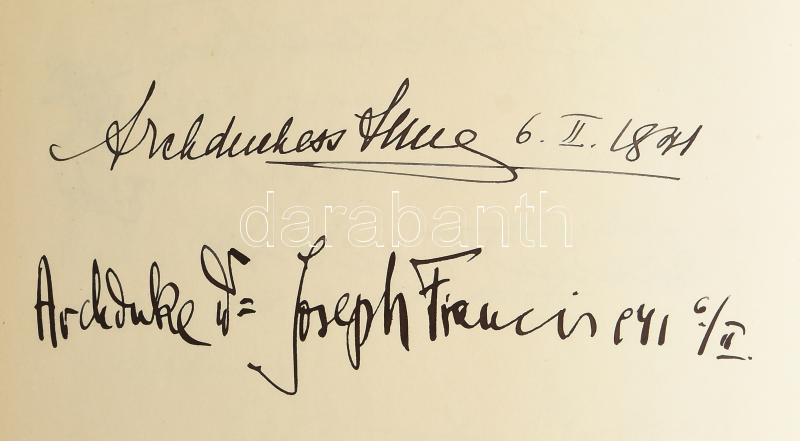 Archduchess Anna 6. II. 1941
darabanth
Archduke Dr= Joseph Francis 941 6/II.